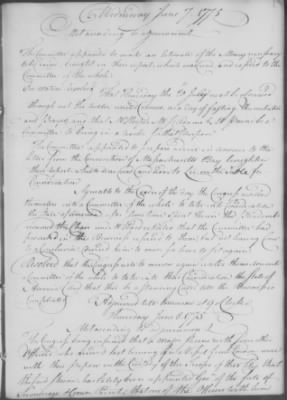 Wednesday June 7. 1775
Met according to agreement.
The Committee appointed to make an Estimate of the Money necessary
to be raised, brought in their report which was read and referred to the
Committee of the whole.
On motion Resolved That Thursday the 20 July next be observed
through out the twelve united Colonies, as a Day of fasting Humiliation
and Prayer; and that Mr Hooper Mr J. Adams & Mr Paine be a
Committee to bring in a resolve for that Purpose.
The Committee appointed to prepare advice in answer to the
letter from the Convention of Massachusetts Bay brought in
their report which was read and Ordered to Lie on the table for
Consideration
Agreeable to the Order of the day the Congress resolved
themselves into a Committee of the whole to take into Consideration
the State of America after some time spent therein the President
resumed the Chair and Mr Ward reported that the Committee had
proceeded in the Business referred to them but not having Come
to a Conclusion desired him to move for leave to sit again
Resolved that the Congress will to morrow again resolve themselves into a
Committee of the whole to take into their Consideration the State of
America And that this be a standing Order until the Business is
Compleated
Adjourned till tomorrow at 9 o Clock
Thursday June 8. 1775
Met according to adjournment
The Congress being informed that a Major Skene with some other
Officers who arrived last evening
with their papers in the Custody of the Troops of this City, that
the said Skene has lately been appointed Gov. of the forts of
Ticonderoga & Crown Point, that one of the Officers with him